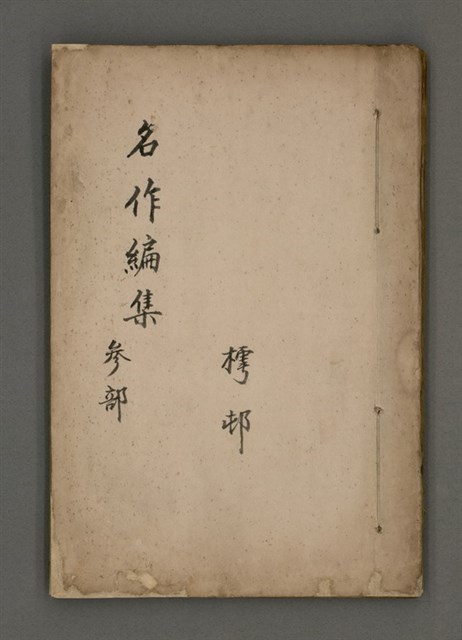 樗邨
名作編集
参部